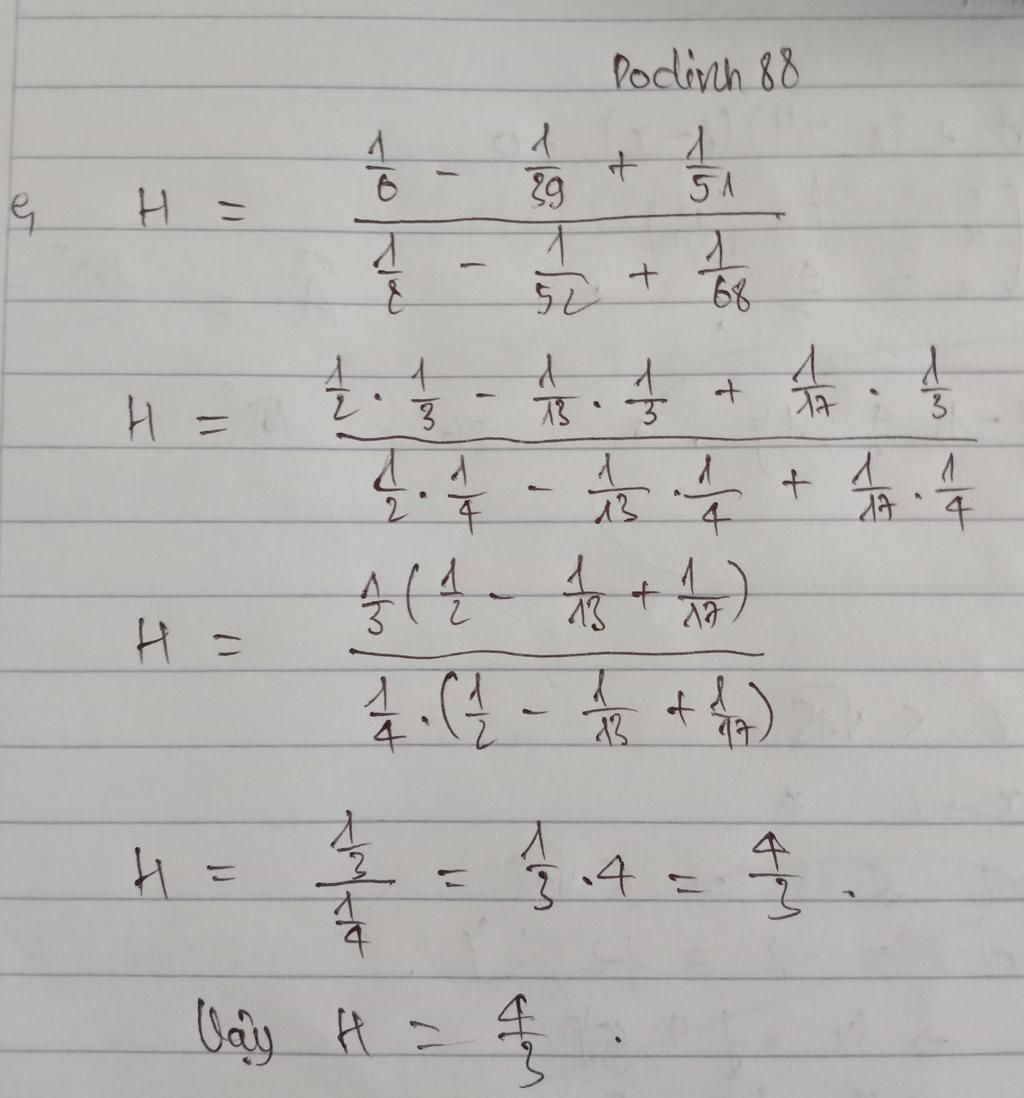 Podinh 88
e, H = (1/6 - 1/39 + 1/51) / (1/8 - 1/52 + 1/68)
H = (1/2 . 1/3 - 1/13 . 1/3 + 1/17 . 1/3) / (1/2 . 1/4 - 1/13 . 1/4 + 1/17 . 1/4)
H = (1/3 (1/2 - 1/13 + 1/17)) / (1/4 . (1/2 - 1/13 + 1/17))
H = (1/3) / (1/4) = 1/3 . 4 = 4/3 .
Vậy H = 4/3 .